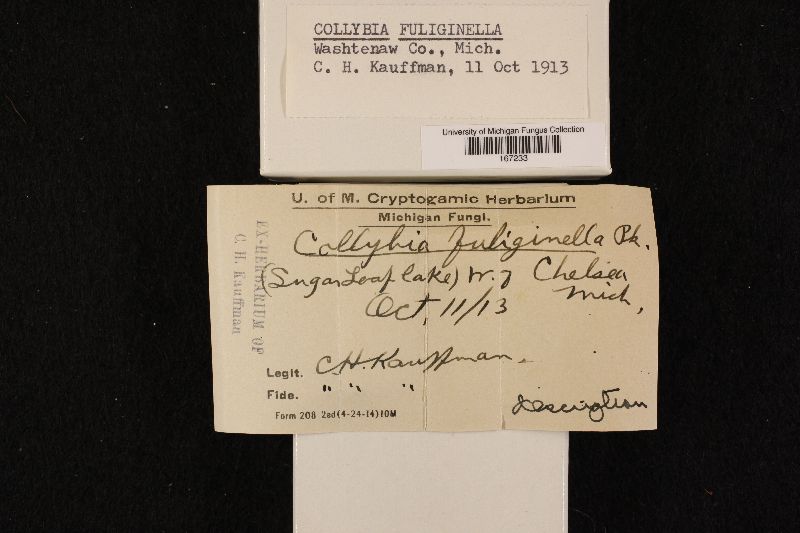 COLLYBIA FULIGINELLA
Washtenaw Co., Mich.
C. H. Kauffman, 11 Oct 1913
University of Michigan Fungus Collection
167233
U. of M. Cryptogamic Herbarium
Michigan Fungi.
Collybia fuliginella Pk.
(Sugar Loaf lake) W. of Chelsea
Mich,
Oct, 11/13
EX-HERBARIUM OF
C. H. Kauffman
Legit. C.H. Kauffman.
Fide. " " "
Description
Form 208 2ed (4-24-14) 10M